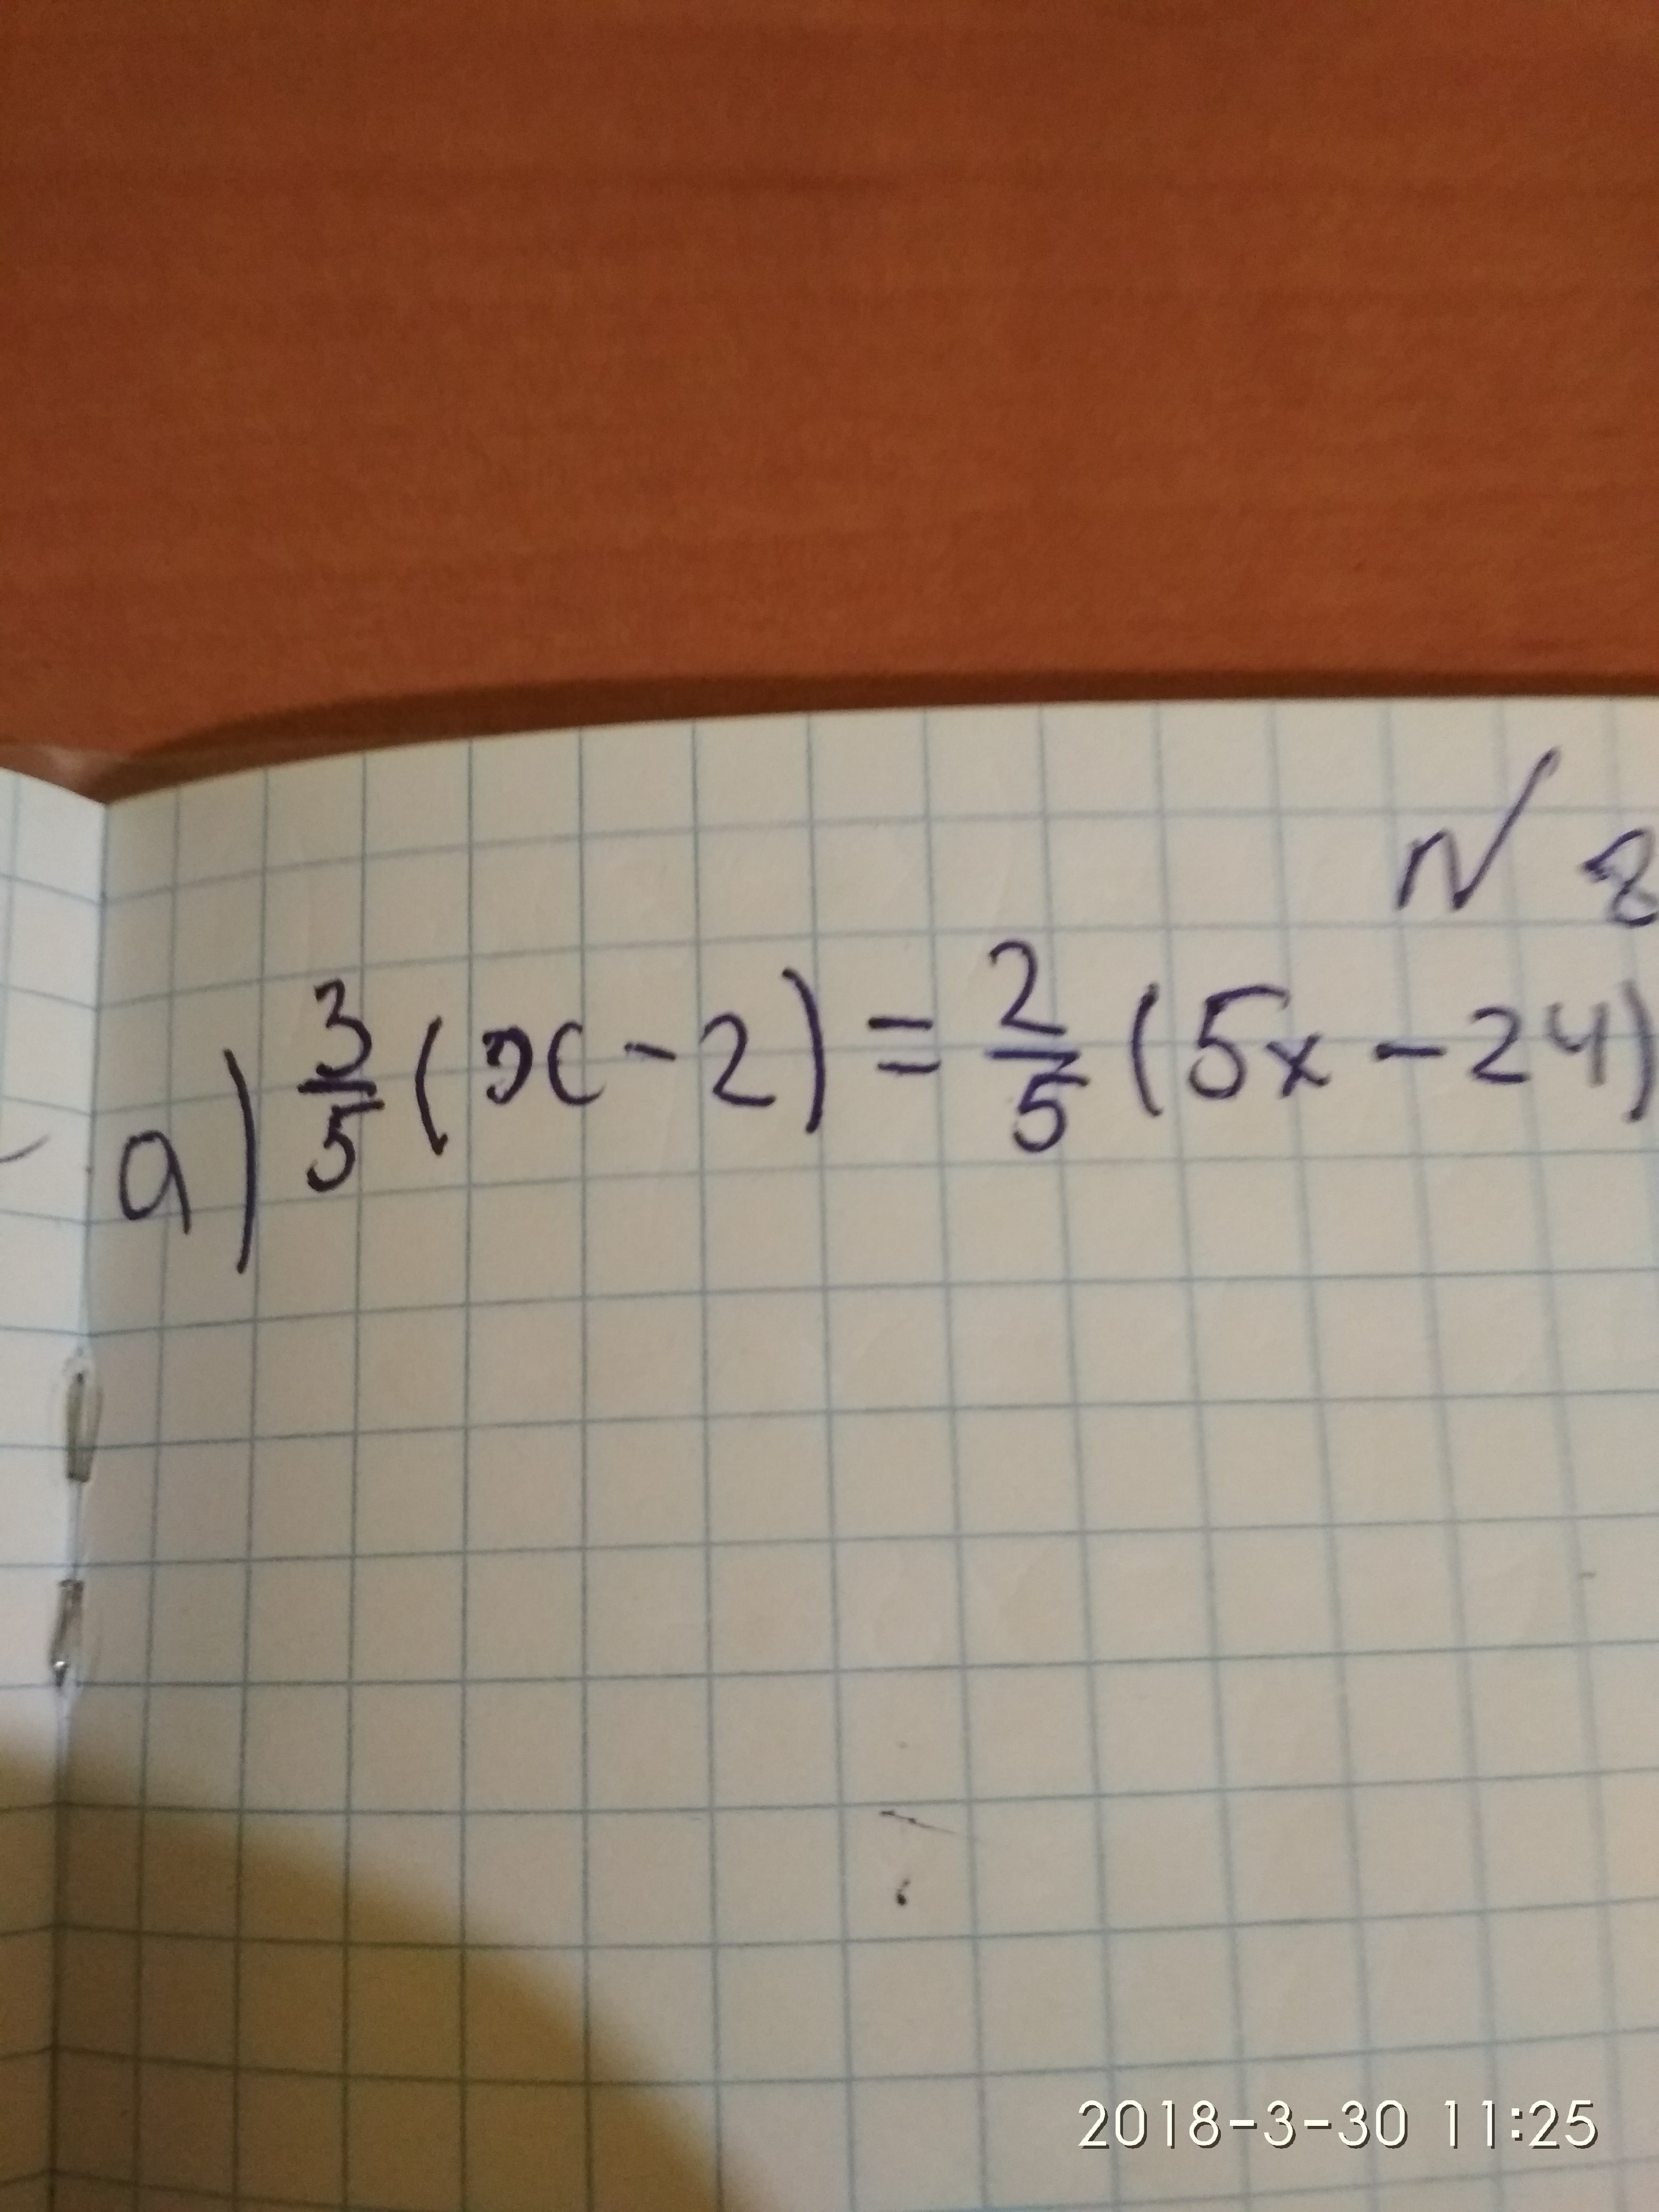 № 8
а) 3/5 (x - 2) = 2/5 (5x - 24)
2018-3-30 11:25